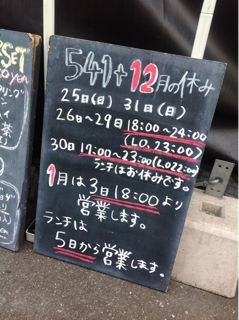 541+ 12月の休み
25日(日) 31日(日)
26日~29日 18:00~24:00
(LO.23:00)
30日 17:00~23:00(L.O22:00)
ランチはお休みです。
1月は3日18:00より
営業します。
ランチは
5日から営業します。
SET